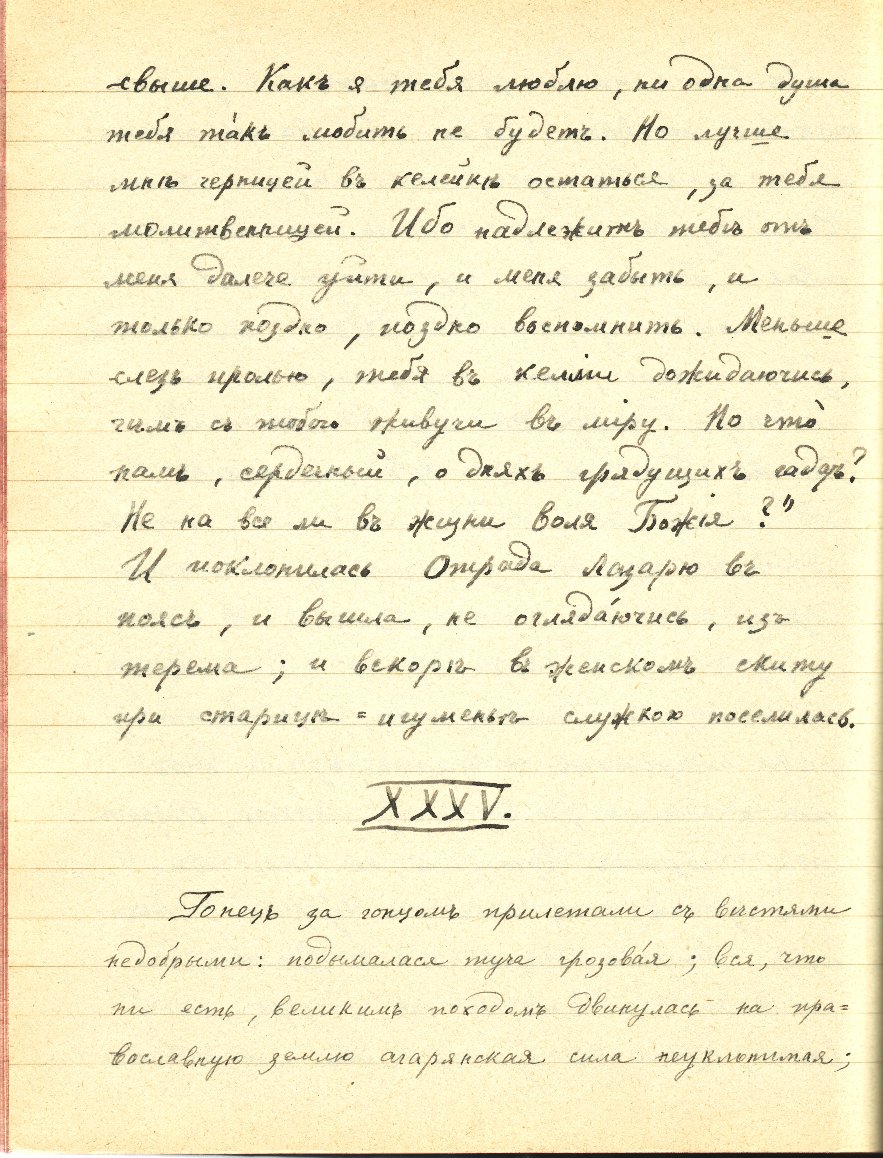 свыше. Какъ я тебя люблю, ни одна душа
тебя та́къ любить не будетъ. Но лучше
мнѣ черницей въ келейкѣ остаться, за тебя
молитвенницей. Ибо надлежитъ тебѣ отъ
меня далече уйти, и меня забыть, и
только поздно, поздно воспомнить. Меньше
слезъ пролью, тебя въ келліи дожидаючись,
чѣмъ съ тобою живучи въ міру. Но что̀
намъ, сердечный, о дняхъ грядущихъ гадать?
Не на все ли въ жизни воля Божія?"
И поклонилась Отрада Лазарю въ
поясъ, и вышла, не огляда́ючись, изъ
терема; и вскорѣ въ женскомъ скиту
при старицѣ=игуменьѣ служкою поселилась.
XXXV.
Гонецъ за гонцомъ прилетали съ вѣстями
недобрыми: подымалася туча грозова́я; вся, что
ни есть, великимъ походомъ двинулась на пра=
вославную землю агарянская сила неуклонимая;